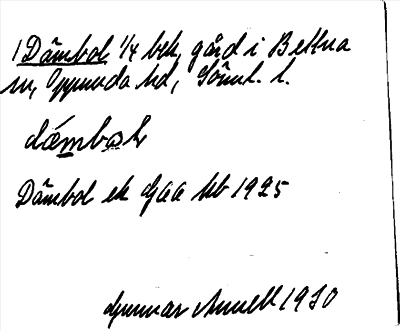 1 Dåmbol 1/4 bek. gård i Bettna
sn, Oppunda hd, Söml. l.
dåmbol
Dåmbol ek Gaa 1925
Gunnar 1930